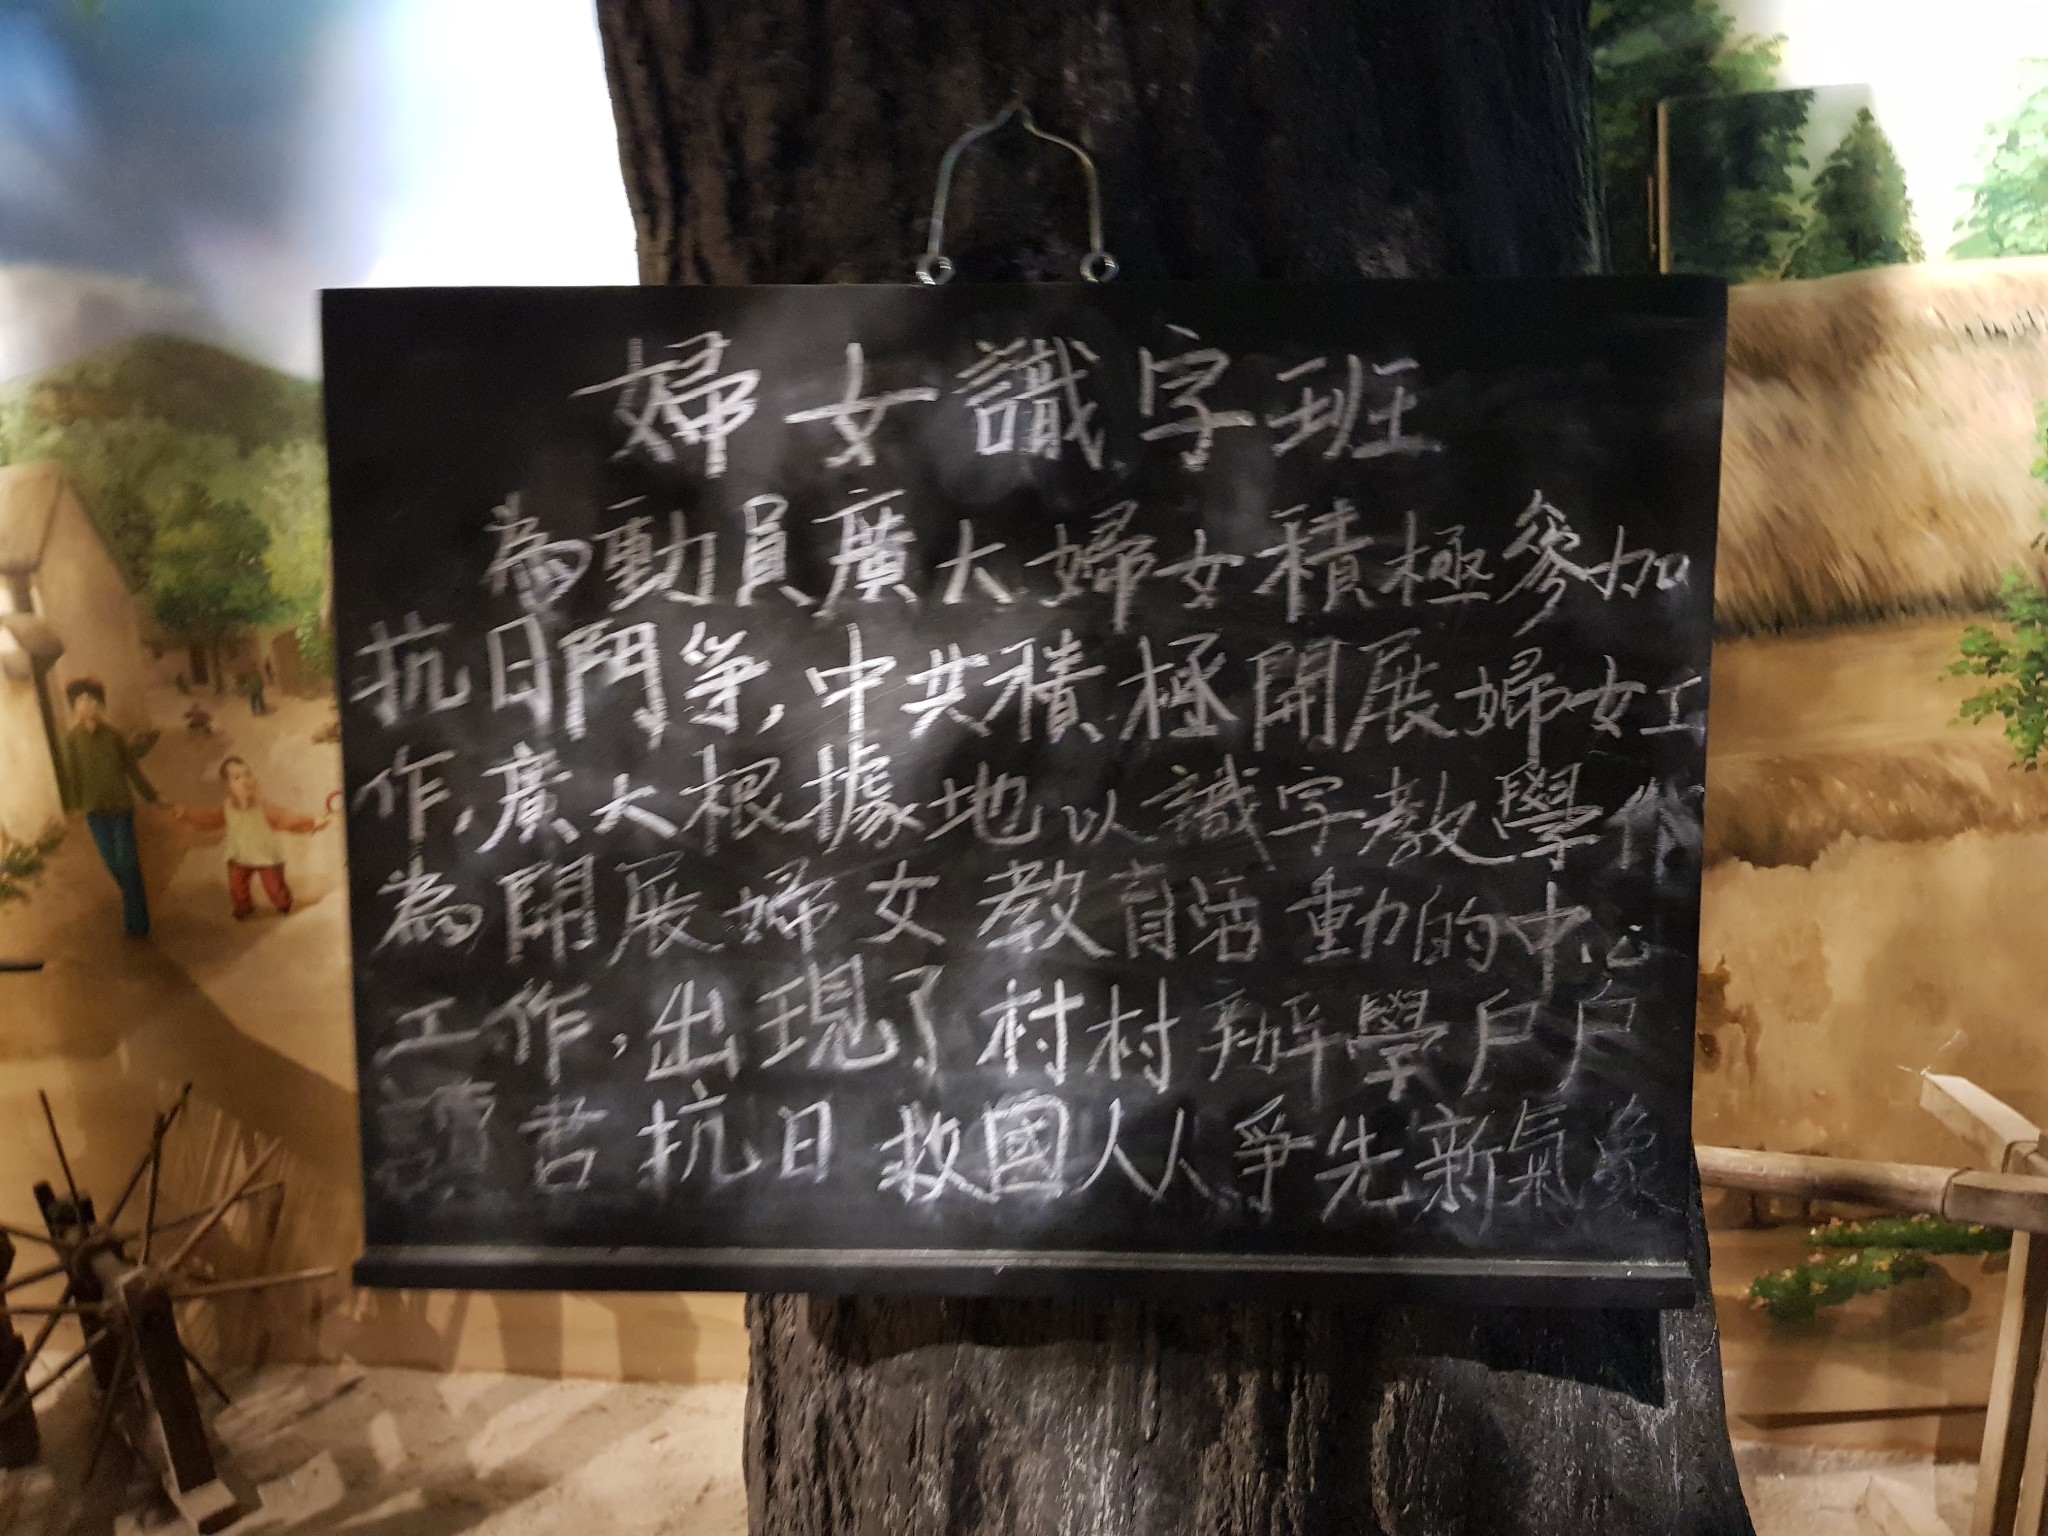 婦女識字班
為動員廣大婦女積極參加
抗日鬥爭,中共積極開展婦女工
作,廣大根據地以識字教學作
為開展婦女教育活動的中心
工作,出現了村村辦學戶戶
讀書抗日救國人人爭先新氣象